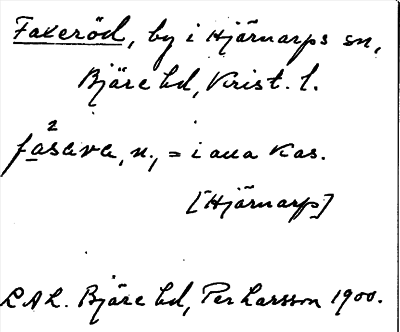 Faxeröd, by i Hjärnarps sn,
Bjäre hd, Krist. l.
2
fasava, n., = i alla kas.
[Hjärnarp]
LAL. Bjäre hd, Per Larsson 1900.